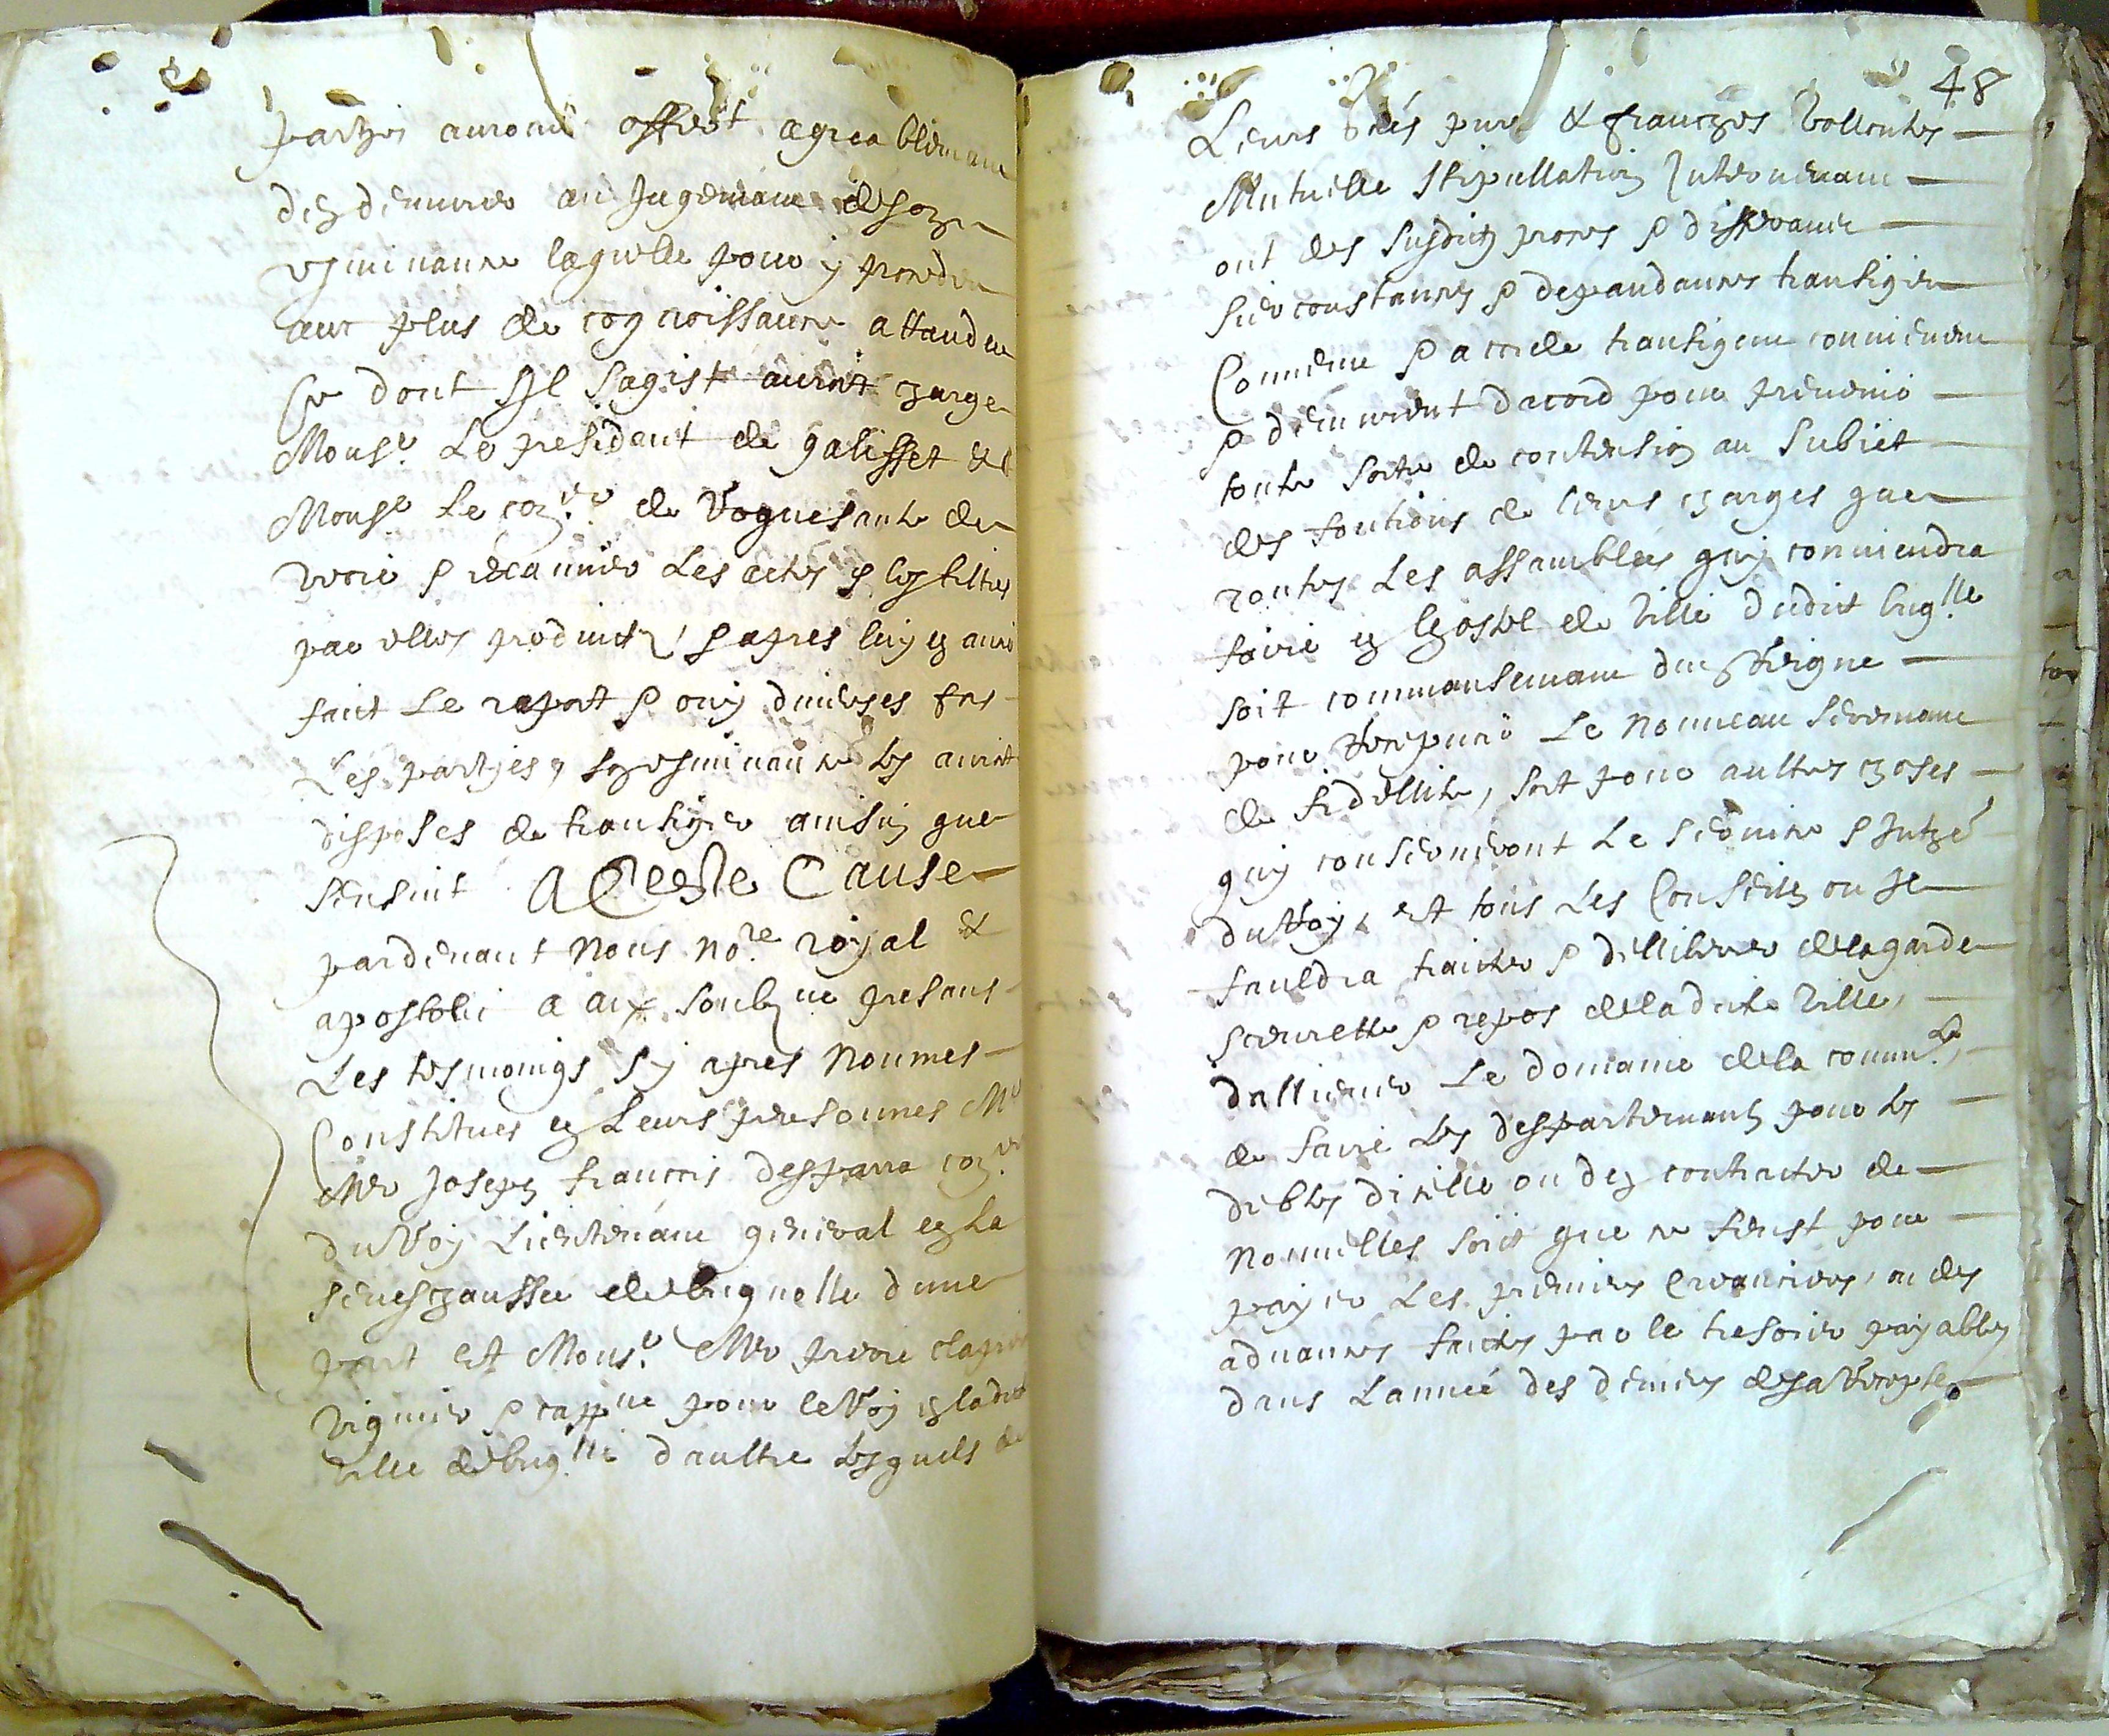 partyes auront offert agreablemant
dy demurer au Jugemant de son
eminance laquelle pour y prendre
aux plus de cognoissance attandeu
Ce dont Il sagist auroit charge
Monsr Le president de galisset &
Monsr Le conser de Voguesante de
veoir & examiner Les actes & les tiltres
par elles produitz, & apres luy en avoir
faict Le raport & ouy diverses fois
Les partyes, son eminance les auroit
disposes de transiger ainsin que
sensuit A Ceste Cause
pardevant Nous nore royal &
apostolic a aix soubzne presans
Les tesmoings sy apres Nommes
Constitues en Leurs presonnes Mr
Me Joseph francois desparra conser
du Roy Lieutenant general en La
seneschaussee de brignolle dune
part Et Monsr Me pierre clapier
viguier & cappne pour le Roy en ladite
ville de briglle daultre Lesquels de
48
Leurs grés pures & franches Vollontes
Mutuelle stipullation Intervenant
ont des susdictz proces & differants
sirconstances & depandances transiger
Comme & a mode transigent conviennent
& demeurent dacord pour prevenir
toute sorte de contension au subiet
des fontions de leurs charges que
toutes Les assamblees quy conviendra
faire en lhostel de Ville dudict briglle
soit commansemant du Reigne
pour Recepvoir Le nouveau seremant
de fidellité, soit pour aultres choses
quy conserneront Le service & Intere
du Roy, et tous Les Conseils ou Il
fauldra traicter & dellibérer de la garde
seurette & repos de ladicte Ville,
dalliener Le domaine de la commté,
de faire les despartemants pour les
debtes dicelle ou den contracter de
nouvelles soict que ce feust pour
payer Les premiers Creanciers, ou des
advances faictes par le tresorier payables
dans Lannee des deniers de sa Recepte